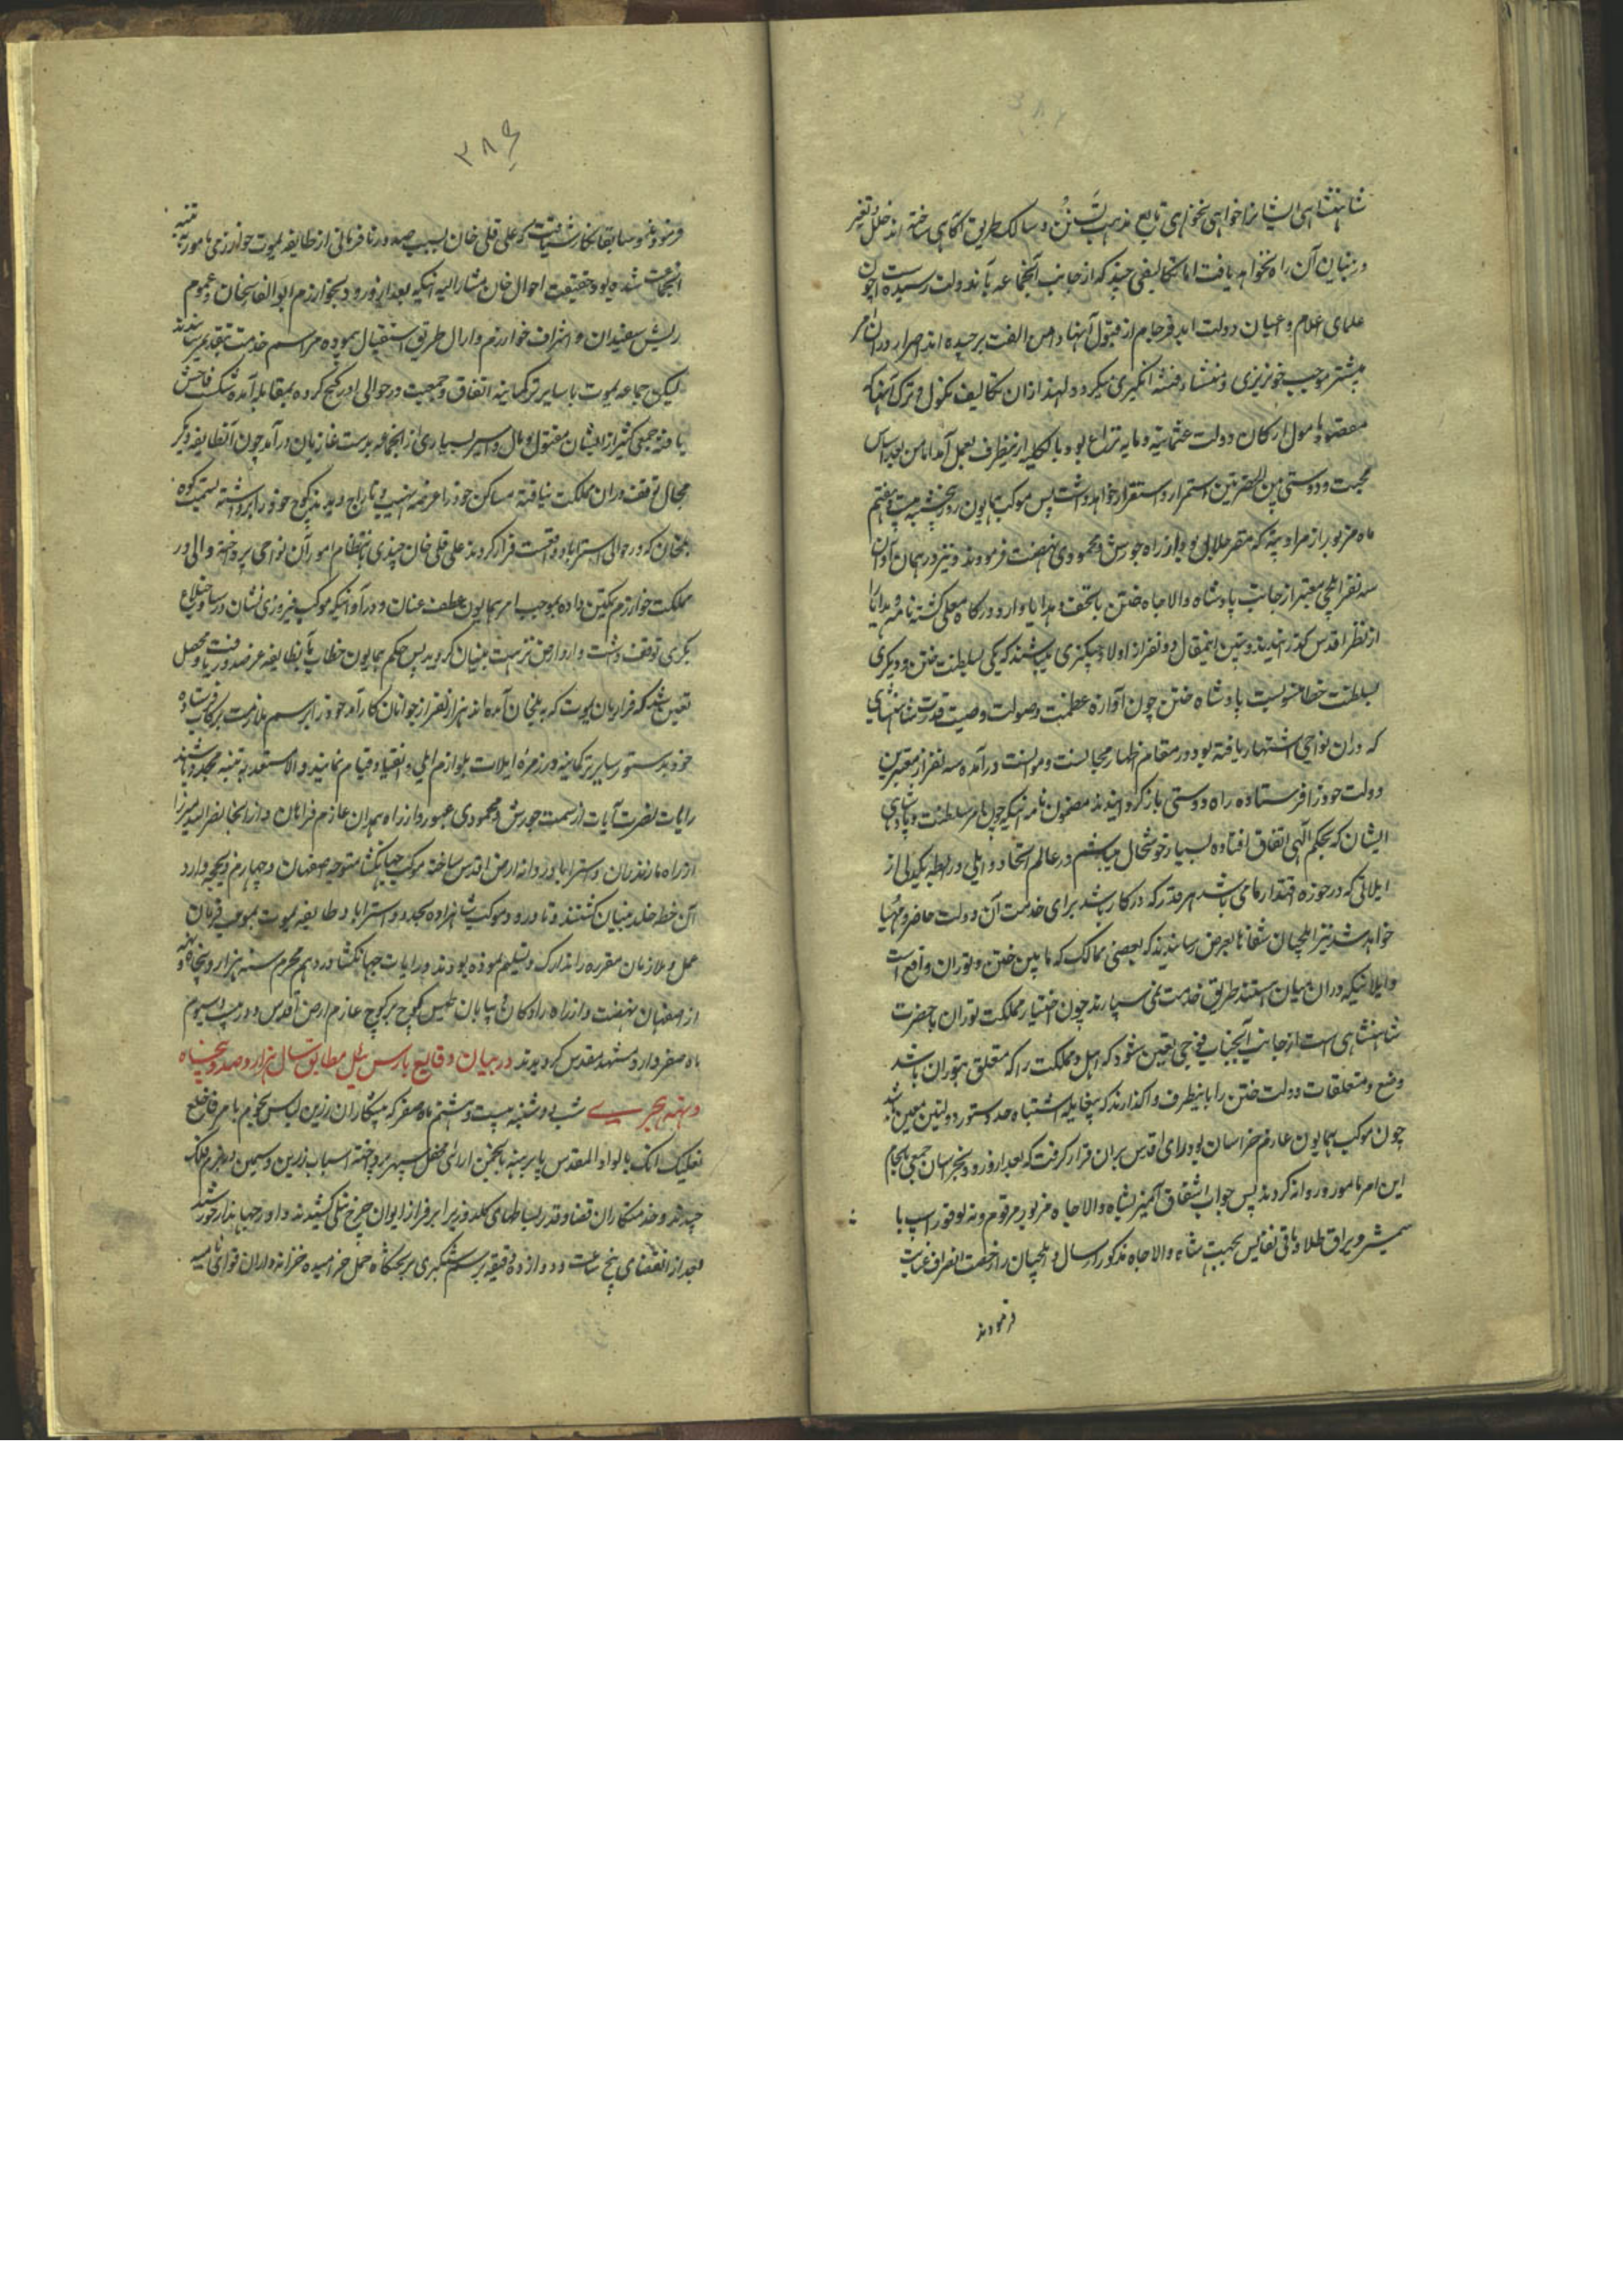 شاهنشاهی ایشانرا خواهی نخواهی تابع مذهب تسنن و سالک طریق آگاهی ساخته اند خلل و تغیر
در بنیان آن راه نخواهد یافت اما تکالیفی چند که از جانب آنجماعه بآندولت رسیده است چون
علمای اعلام و اعیان دولت ابد فرجام از قبول آنها دامن الفت برچیده اند اصرار در آن امر
بیشتر موجب خونریزی و منشاء فتنه انگیزی میگردد لهذا از ان تکالیف نکول و ترک آنها که
مقصود و مامول ارکان دولت عثمانیه و مایه نزاع بود بالکلیه از ینطرف بعمل آمد اما من بعد اساس
محبت و دوستی بین الحضرتین استمرار و استقرار خواهد داشت پس موکب همایون روز پنجشنبه بیست و هفتم
ماه مزبور از مراد تپه که مقر جلال بود از راه چورس و محمودی نهضت فرمودند و نیز در همان آوان
سه نفر ایلچی معتبر از جانب پادشاه والا جاه ختن با تحف و هدایا وارد درگاه معلی گشته نامه و هدایا را
از نظر اقدس گذرانیدند و تبین اینمقال دو نفر از اولاد چنگیزی میباشند که یکی بسلطنت ختن و دیگری
بسلطنت خطا منسوبست پادشاه ختن چون آوازه عظمت و صولت وصیت قدرت شاهنشاهی
که دران نواحی اشتهار یافته بود در مقام اظهار مجالست و موانست درآمده سه نفر از معتبرین
دولت خود را فرستاده راه دوستی باز کردانیدند مضمون نامه آنکه چون امر سلطنت و پادشاهی
ایشان که بحکم آلهی اتفاق افتاده بسیار خوشحال میباشم و در عالم اتحاد و ایلی و رابطه یکدلی از
ایلاتی که در حوزه اقتدار ما می باشد هر قدر که در کار باشد برای خدمت آن دولت حاضر و مهیا
خواهد شد نیز ایلچیان شفاها بعرض رسانیدند که بعضی ممالک که ما بین ختن و توران واقع است
و ایلاتیکه دران میان هستند طریق خدمت نمی سپارند چون اختیار مملکت توران با حضرت
شاهنشاهی است از جانب آنجناب فوجی تعین شود که اهل و مملکت را که متعلق بتوران باشد
وضع و متعلقات دولت ختن را باینطرف واگذارند که بیغایله اشتباه حد و سنور دولتین معین باشد
چون موکب همایون عازم خراسان بود رای اقدس بران قرار گرفت که بعد از ورود بخراسان جمعی بانجام
این امر مامور و روانه کردند پس جواب اشفاق آمیز بشاه والا جاه مزبور مرقوم و نه تقوز اسپ با
شمشیر و یراق طلا و باقی نفایس بجهت شاه والا جاه مذکور ارسال و ایلچیان را رخصت انصراف عنایت
فرمودند
۳۸۶
فرمودند و سابقا نگارش یافت که علی قلی خان بسبب صدور نافرمانی از طایفه یموت خوارزمی مامور به تنبیه
انجماعت شده بود حقیقت احوال خان مشار الیه آنکه بعد از ورود بخوارزم ابو الغازیخان و عموم
ریش سفیدان و اشراف خوارزم و ارال طریق استقبال پیموده مراسم خدمت بتقدیم رسانیدند
لیکن جماعه یموت با سایر ترکمانیه اتفاق و جمعیت در حوالی اورکنج کرده بمقابله آمده شکست فاحش
یافته جمعی کثیر از ایشان مقتول و مال و اسیر بسیاری از انجماعه بدست غازیان در آمد چون آنطایفه دیگر
مجال توقف دران مملکت نیافتند مساکن خود را عرضه نهب و تاراج دیدند کوچ خود را برداشته بسمت کوه
بلخان که در حوالی استراباد واقعست فرار کردند علی قلی خان چندی بانتظام امور آن نواحی پرداخته والی در
مملکت خوارزم تمکین داده بموجب امر همایون عطف عنان و در آوانیکه موکب فیروزی نشان در ساوجبلاغ
مکری توقف داشت وارد ارض نزهت بنیان کردید پس حکم همایون خطاب بآنطایفه عز صدور یافت و محصل
تعین شد که فراریان یموت که به بلخان آمده اند هزار نفر از جوانان کارآمد خود را برسم ملازمت برکاب فرستاده
خود بدستور سایر ترکمانیه در زمره ایلات بلوازم ایلی و انقیاد قیام نمایند و الا مستعد به تنبیه مجدد باشند
رایات نصرت آیات از سمت چورس و محمودی عبور و از راه همدان عازم فراهان و از آنجا نصر الله میرزا
از راه مازندران و استراباد روانه ارض اقدس ساخته موکب جهانگشا متوجه اصفهان و چهارم ذیحجه وارد
آن خطه خلد بنیان گشتند و تا ورود موکب شاهزاده بحدود استراباد طایفه یموت بموجب فرمان
عمل و ملازمان مقرره را تدارک و تسلیم نموده بودند و رایات جهانگشا در دهم محرم سنه هزار و پنجاه و نه
از اصفهان نهضت و از راه راوکان بیابان طبس کوچ بر کوچ عازم ارض اقدس و در بیست و سیوم
ماه صفر وارد مشهد مقدس کردیدند در بیان وقایع بارس ئیل مطابق سال هزار و صد و پنجاه
و نه هجری شب دوشنبه بیست و هشتم ماه صفر که پیشکاران زرین لباس نجوم بامر فاخلع
نعلیک انک بالواد المقدس پا برهنه بانجمن ارائی محفل سپهر پرداخته اسباب زرین و سیمین در بزم فلک
چیدند و خدمتکاران قضا و قدر بساطهای گلدوز پر ابر فراز ایوان چرخ نیلی کشیدند داور جهاندار خورشید
بعد از انقضای پنج ساعت و دوازده دقیقه برسم لشکری بریختگاه حمل خرامیده خزانه داران قوای نامیه